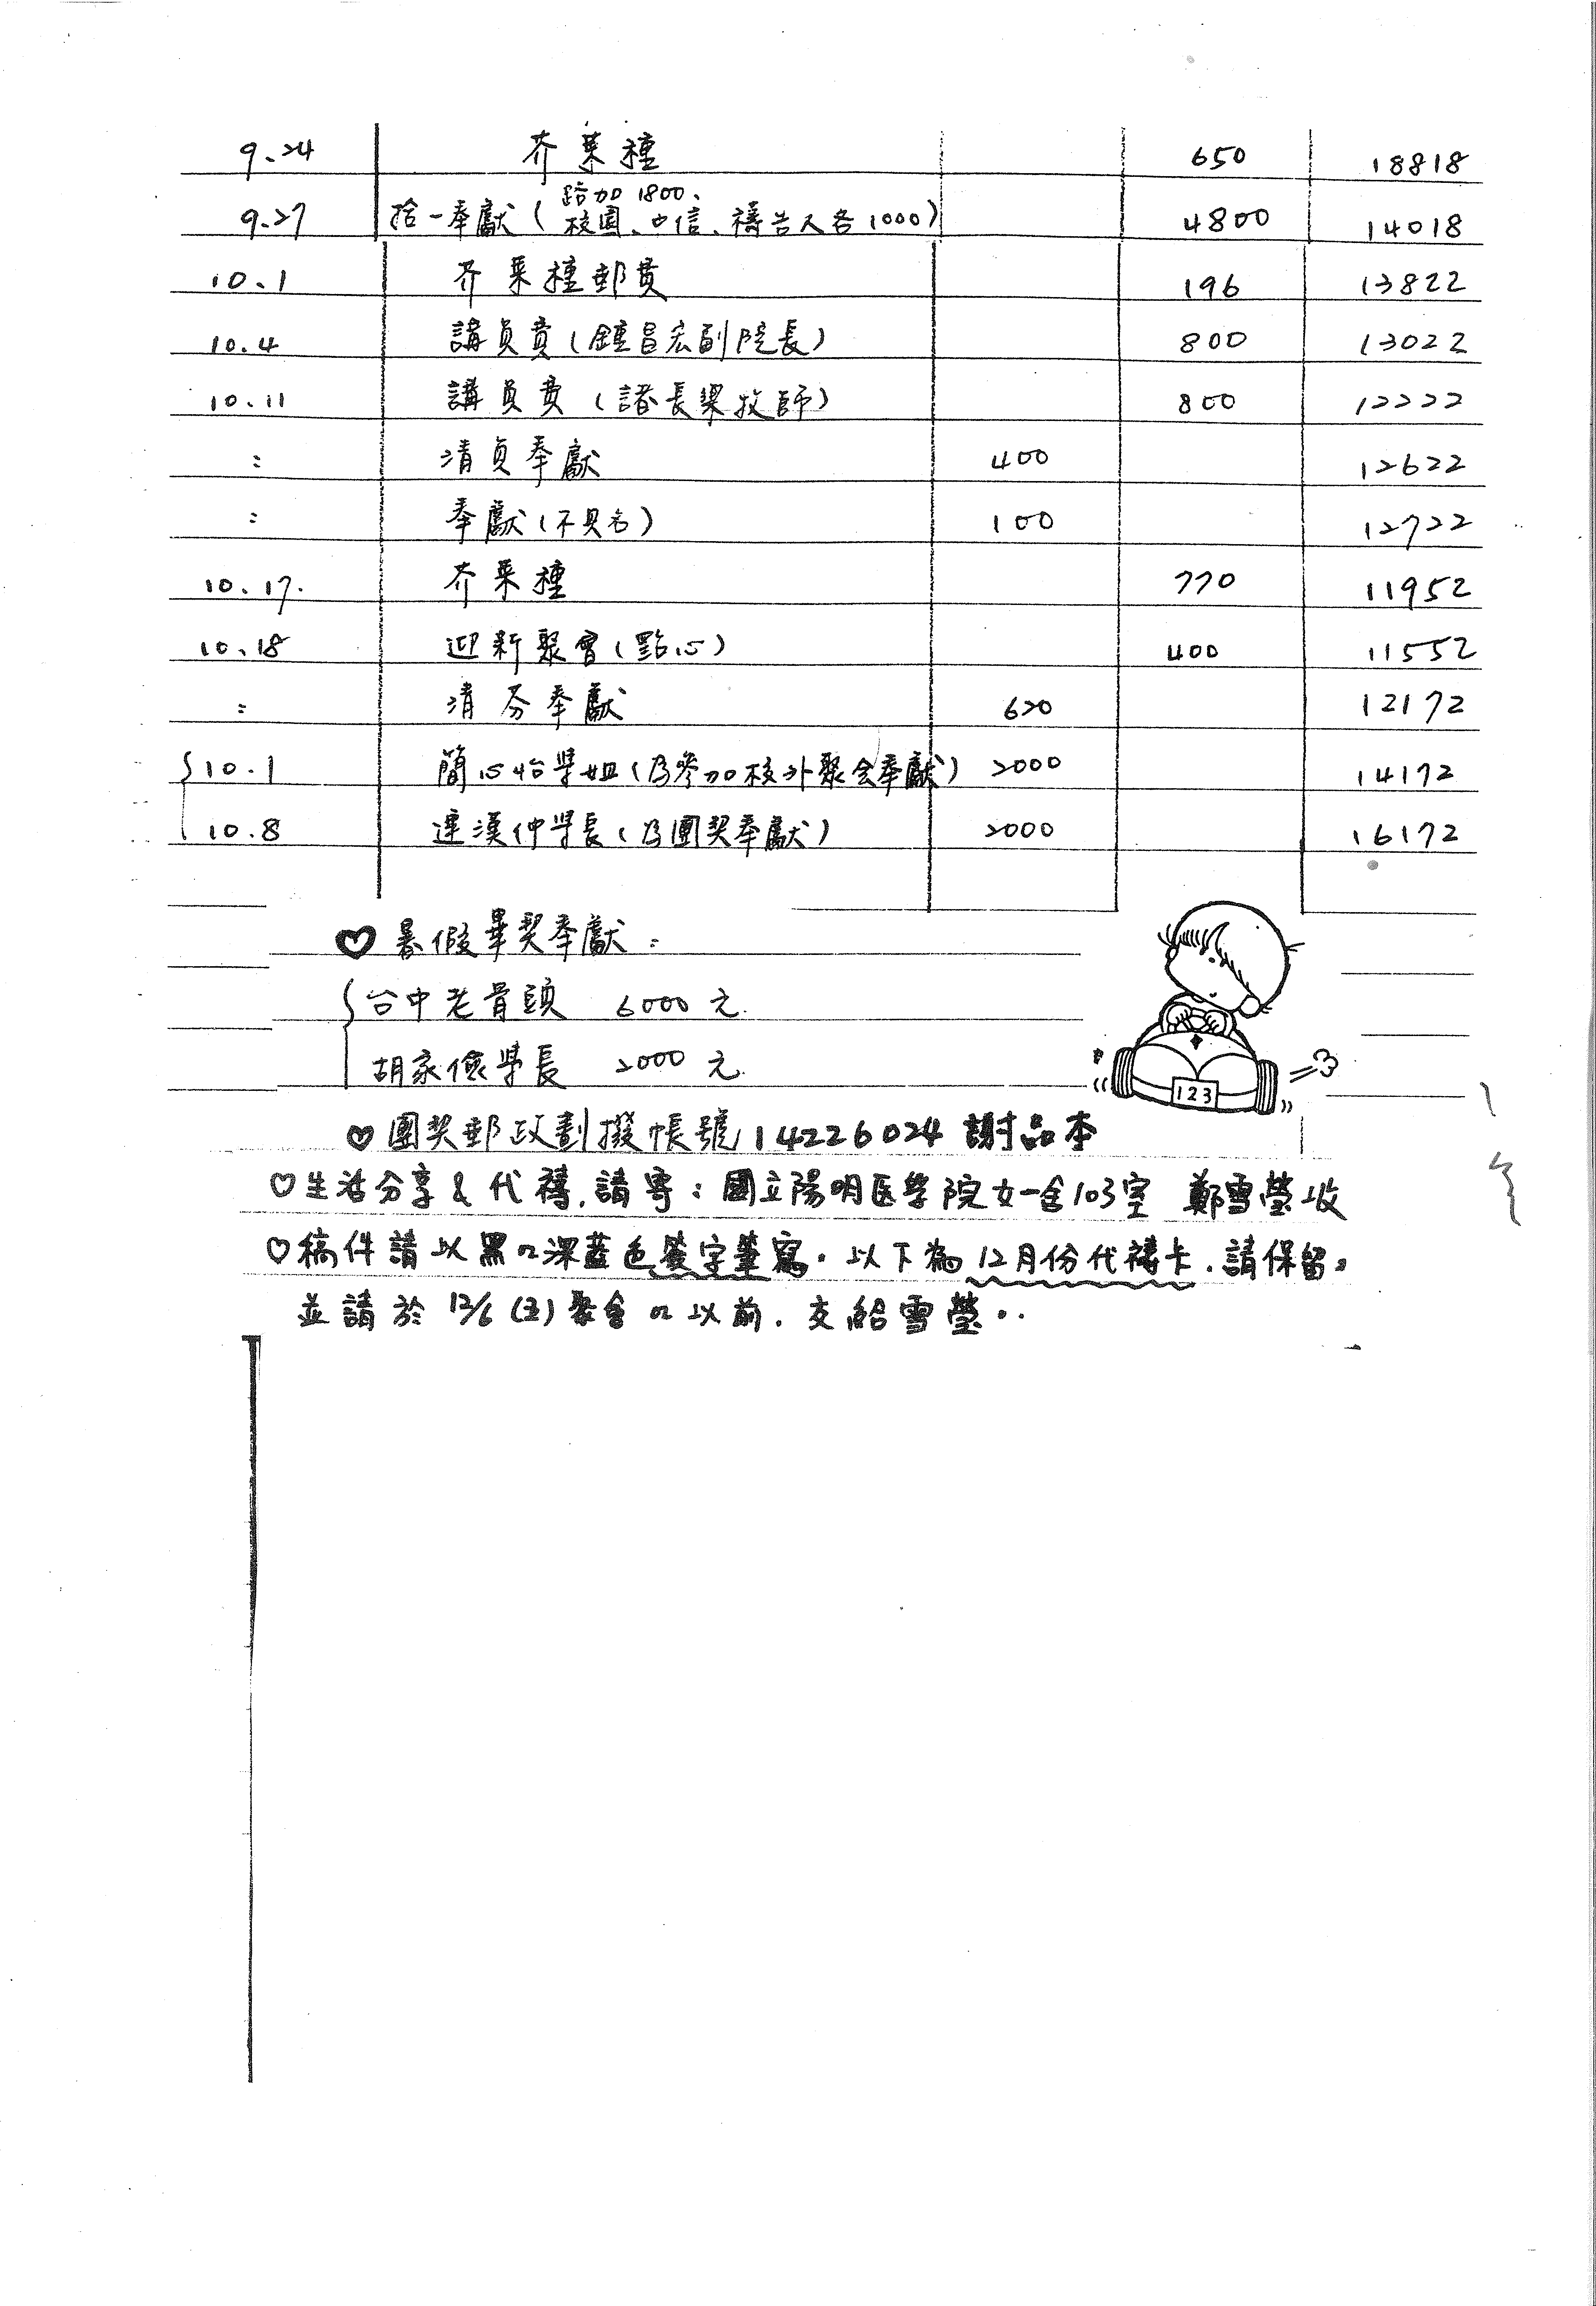 9.24 芥菜種 650 18818
9.27 拾一奉獻(路加1800、校園、中信、禱告人各1000) 4800 14018
10.1 芥菜種郵費 196 13822
10.4 講員費(鍾昌宏副院長) 800 13022
10.11 講員費(諸長樂牧師) 800 12222
: 清貞奉獻 400 12622
: 奉獻(不具名) 100 12722
10.17. 芥菜種 770 11952
10.18 迎新聚會(點心) 400 11552
: 清芬奉獻 620 12172
10.1 簡心怡學姐(為參加校外聚会奉獻) 2000 14172
10.8 連漢仲學長(為團契奉獻) 2000 16172
♡暑假畢契奉獻:
台中老骨頭 6000元.
胡家儉學長 2000元.
123
♡團契郵政劃撥帳號14226024 謝品本
♡生活分享&代禱,請寄:國立陽明医學院女一舍103室 鄭雪瑩收
♡稿件請以黑or深藍色簽字筆寫.以下為12月份代禱卡.請保留。
並請於12/6(五)聚會or以前.交給雪瑩..